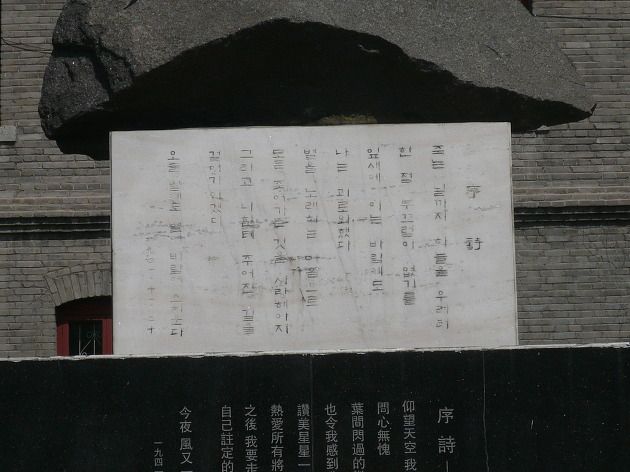 序 詩
죽는 날까지 하늘을 우러러
한 점 부끄럼이 없기를
잎새에 이는 바람에도
나는 괴로워했다
별을 노래하는 마음으로
모든 죽어가는 것을 사랑해야지
그리고 나한테 주어진 길을
걸어가야겠다
오늘 밤에도 별이 바람에 스치운다
一九四一·十一·二十
序 詩
仰望天空 我
問心無愧
葉間閃過的
也令我感到
讚美星星一
熱愛所有將
之後 我要走
自己註定的
今夜 風又
一九四